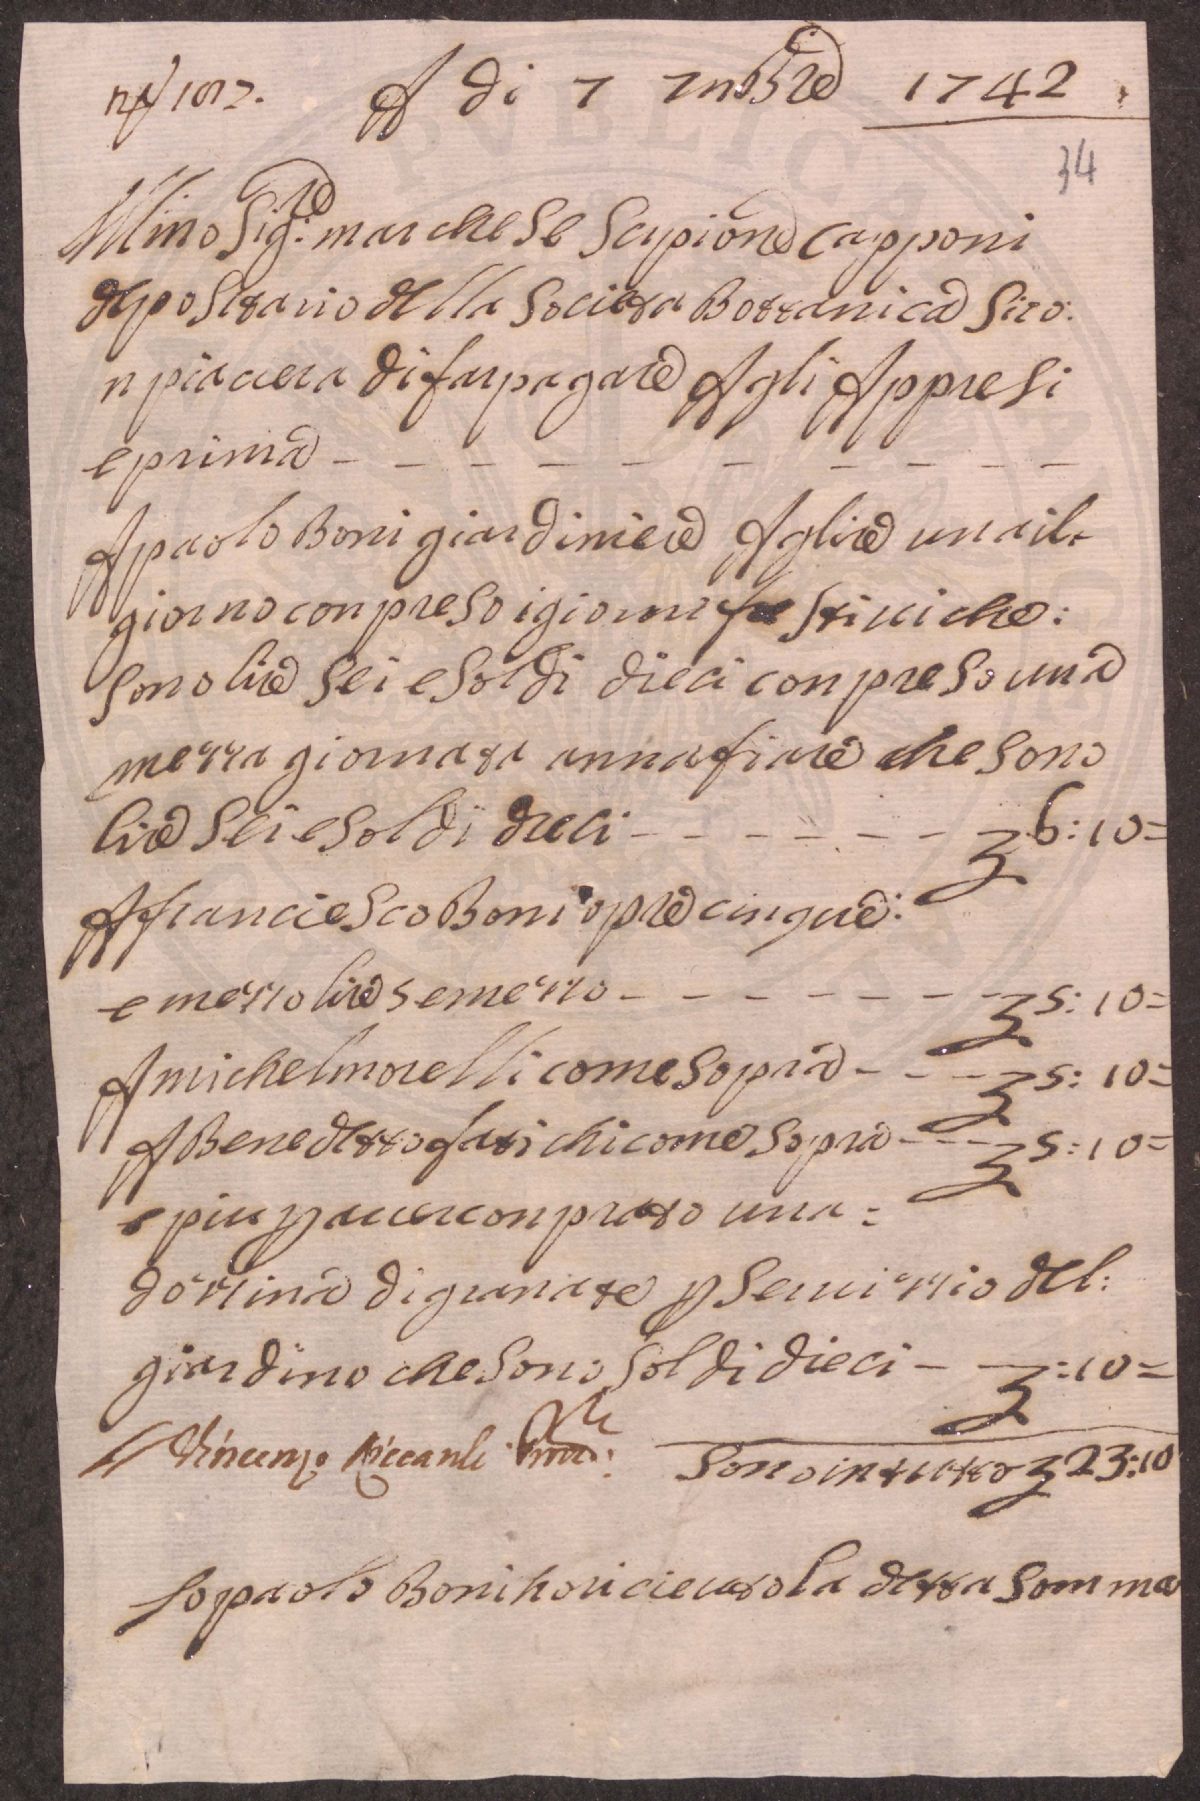 A di 7 7mbre 1742
34
Ill.mo Sig.re marchese Scipione Capponi
depositario della Societta Bottanica Si co:
n piacera di far pagare Agli Appresi
e prima - - - - - - - - - - -
A paolo Boni giardiniere A glire una il.
giorno conpreso i giorni festiui che:
sono lire sei e soldi dieci conpreso una
mezza giornata annafiare che sono
lire sei e soldi dieci - - - - - - 6:10=
A franciesco Boni opre cinque:
e mezzo lire 5 e mezzo - - - - - - - 5:10=
A michel morelli come sopra - - - 5:10=
A Benedetto fatichi come sopra - - - 5:10=
e piu p auer conprato una =
dozzina di granate p seruizzio del:
giardino che sono soldi dieci - - :10=
Vincenzo Riccardi
Sono in tutto 23:10
Io paolo Boni ho riceuuto la detta somma